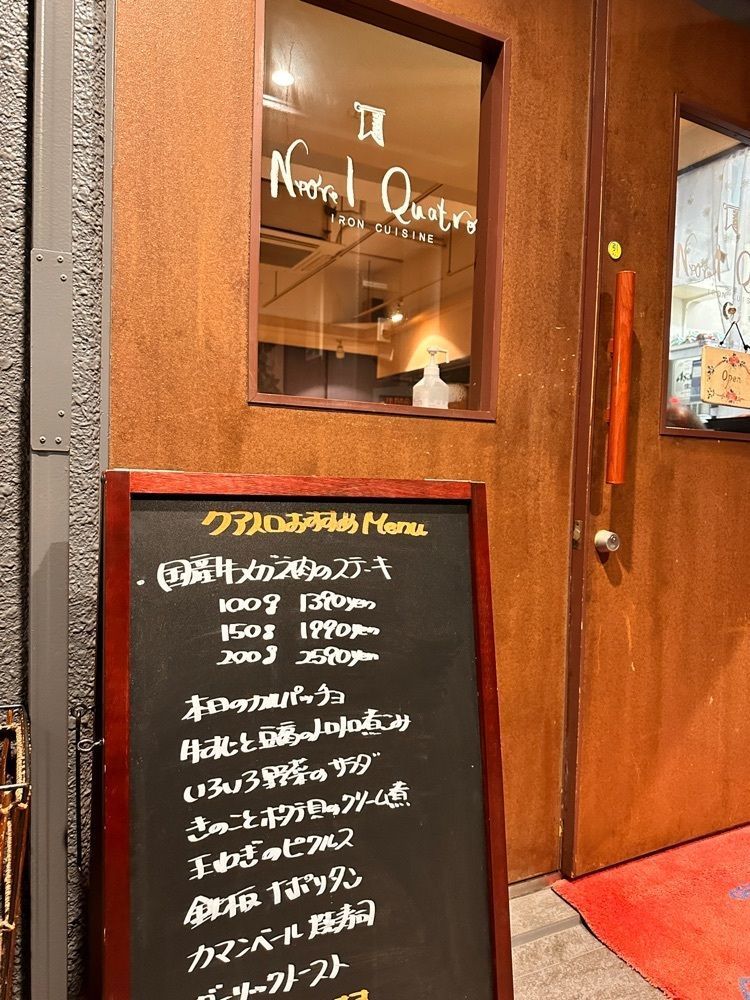 Nyorel Quatro
IRON CUISINE
Open
クアトロおすすめMenu
・国産牛メガネ肉のステーキ
100g 1390yen
150g 1990yen
200g 2590yen
本日のカルパッチョ
牛すじと豆腐のトロトロ煮こみ
いろいろ野菜のサラダ
きのことホタテ貝のクリーム煮
玉ねぎのピクルス
鉄板ナポリタン
カマンベール
ガーリックトースト